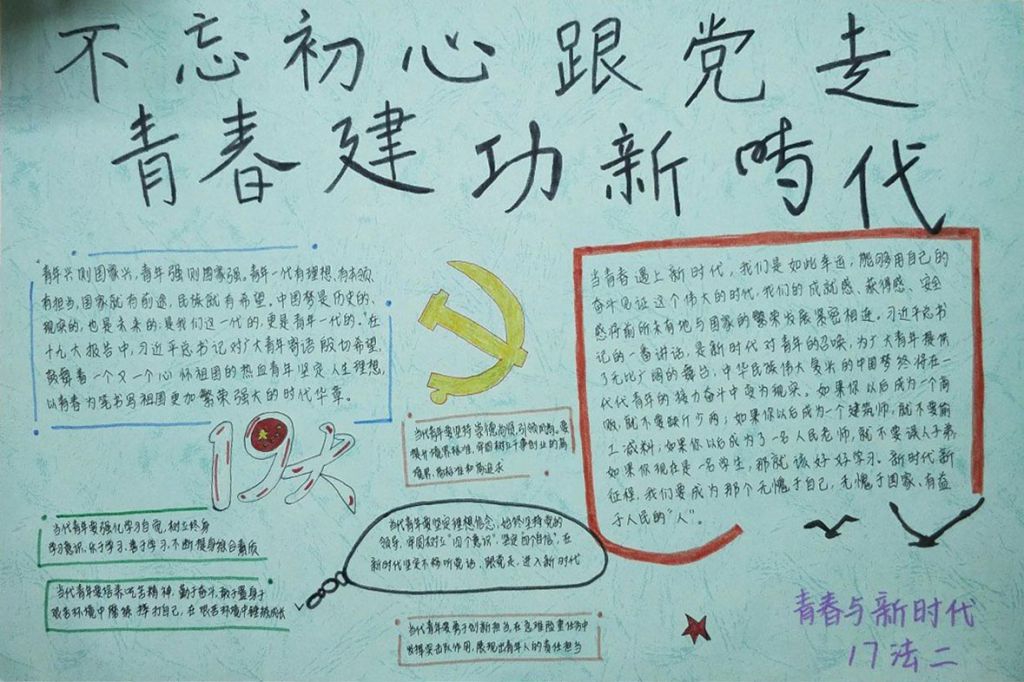 不忘初心跟党走
青春建功新时代
青年兴则国家兴，青年强则国家强。青年一代有理想、有本领、
有担当，国家就有前途，民族就有希望。中国梦是历史的、
现实的，也是未来的；是我们这一代的，更是青年一代的。"在
十九大报告中，习近平总书记对广大青年寄语殷切希望，
鼓舞着一个又一个心怀祖国的热血青年坚定人生理想，
以青春为笔书写祖国更加繁荣强大的时代华章。
19大
当代青年要强化学习自觉，树立终身
学习意识，乐于学习、善于学习，不断提身综合素质
当代青年要培养吃苦精神，勤于奋斗，敢于置身于
艰苦环境中磨练捶打自己，在艰苦环境中锤炼成长
当代青年要坚持崇德尚贤，引领风尚，要
提升境界标准，牢固树立干事创业的高
境界、高标准和高追求
当代青年要坚定理想信念，始终坚持党的
领导，牢固树立"四个意识"，坚定"四个自信"，在
新时代坚定不移听党话、跟党走，进入新时代
当代青年要勇于创新担当，在急难险重任务中
发挥突击队作用，展现出青年人的责任担当
当青春遇上新时代，我们是如此幸运，能够用自己的
奋斗见证这个伟大的时代，我们的成就感、获得感、安全
感将前所未有地与国家的繁荣发展紧密相连。习近平总书
记的一番讲话，是新时代对青年的召唤，为广大青年提供
了无比广阔的舞台，中华民族伟大复兴的中国梦终将在一
代代青年的接力奋斗中变为现实。如果你以后成为一个商
贩，就不要缺斤少两；如果你以后成为一个建筑师，就不要偷
工减料；如果你以后成为了一名人民老师，就不要误人子弟，
如果你现在是一名学生，那就该好好学习。新时代新
征程，我们要成为那个无愧于自己，无愧于国家、有益
于人民的"人"。
青春与新时代
17法二